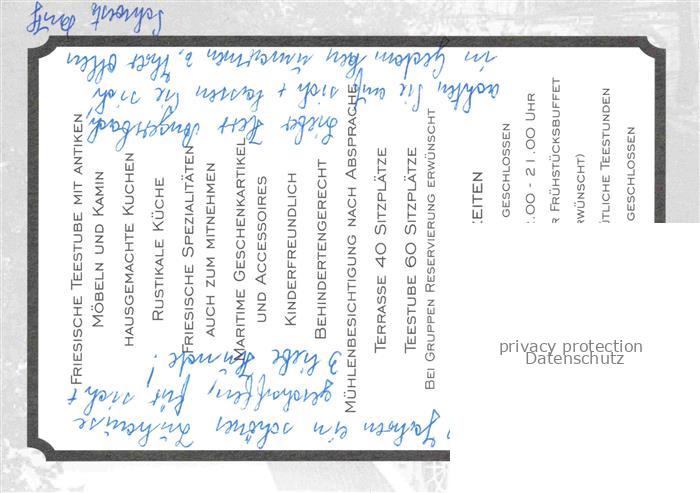 FRIESISCHE TEESTUBE MIT ANTIKEN
MÖBELN UND KAMIN
HAUSGEMACHTE KUCHEN
RUSTIKALE KÜCHE
FRIESISCHE SPEZIALITÄTEN
AUCH ZUM MITNEHMEN
MARITIME GESCHENKARTIKEL
UND ACCESSOIRES
KINDERFREUNDLICH
BEHINDERTENGERECHT
MÜHLENBESICHTIGUNG NACH ABSPRACHE
TERRASSE 40 SITZPLÄTZE
TEESTUBE 60 SITZPLÄTZE
BEI GRUPPEN RESERVIERUNG ERWÜNSCHT
ZEITEN
GESCHLOSSEN
.00 - 21.00 UHR
R FRÜHSTÜCKSBUFFET
RWÜNSCHT)
ÜTLICHE TEESTUNDEN
GESCHLOSSEN
Jahren ein schönes Zuhause
geschaffen, für sich +
3 liebe Hunde!
Lieber Herr
achten Sie auf sich + lassen Sie sich
in Gedanken umarmen
Schwester
privacy protection
Datenschutz